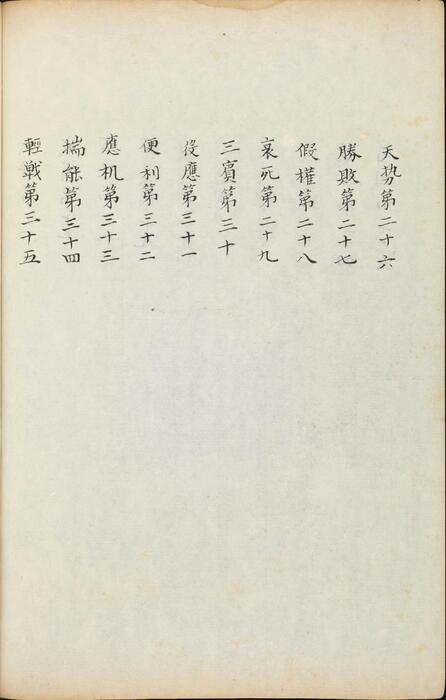 天势第二十六
勝敗第二十七
假權第二十八
哀死第二十九
三賓第三十
後應第三十一
便利第三十二
應机第三十三
揣能第三十四
輕戰第三十五